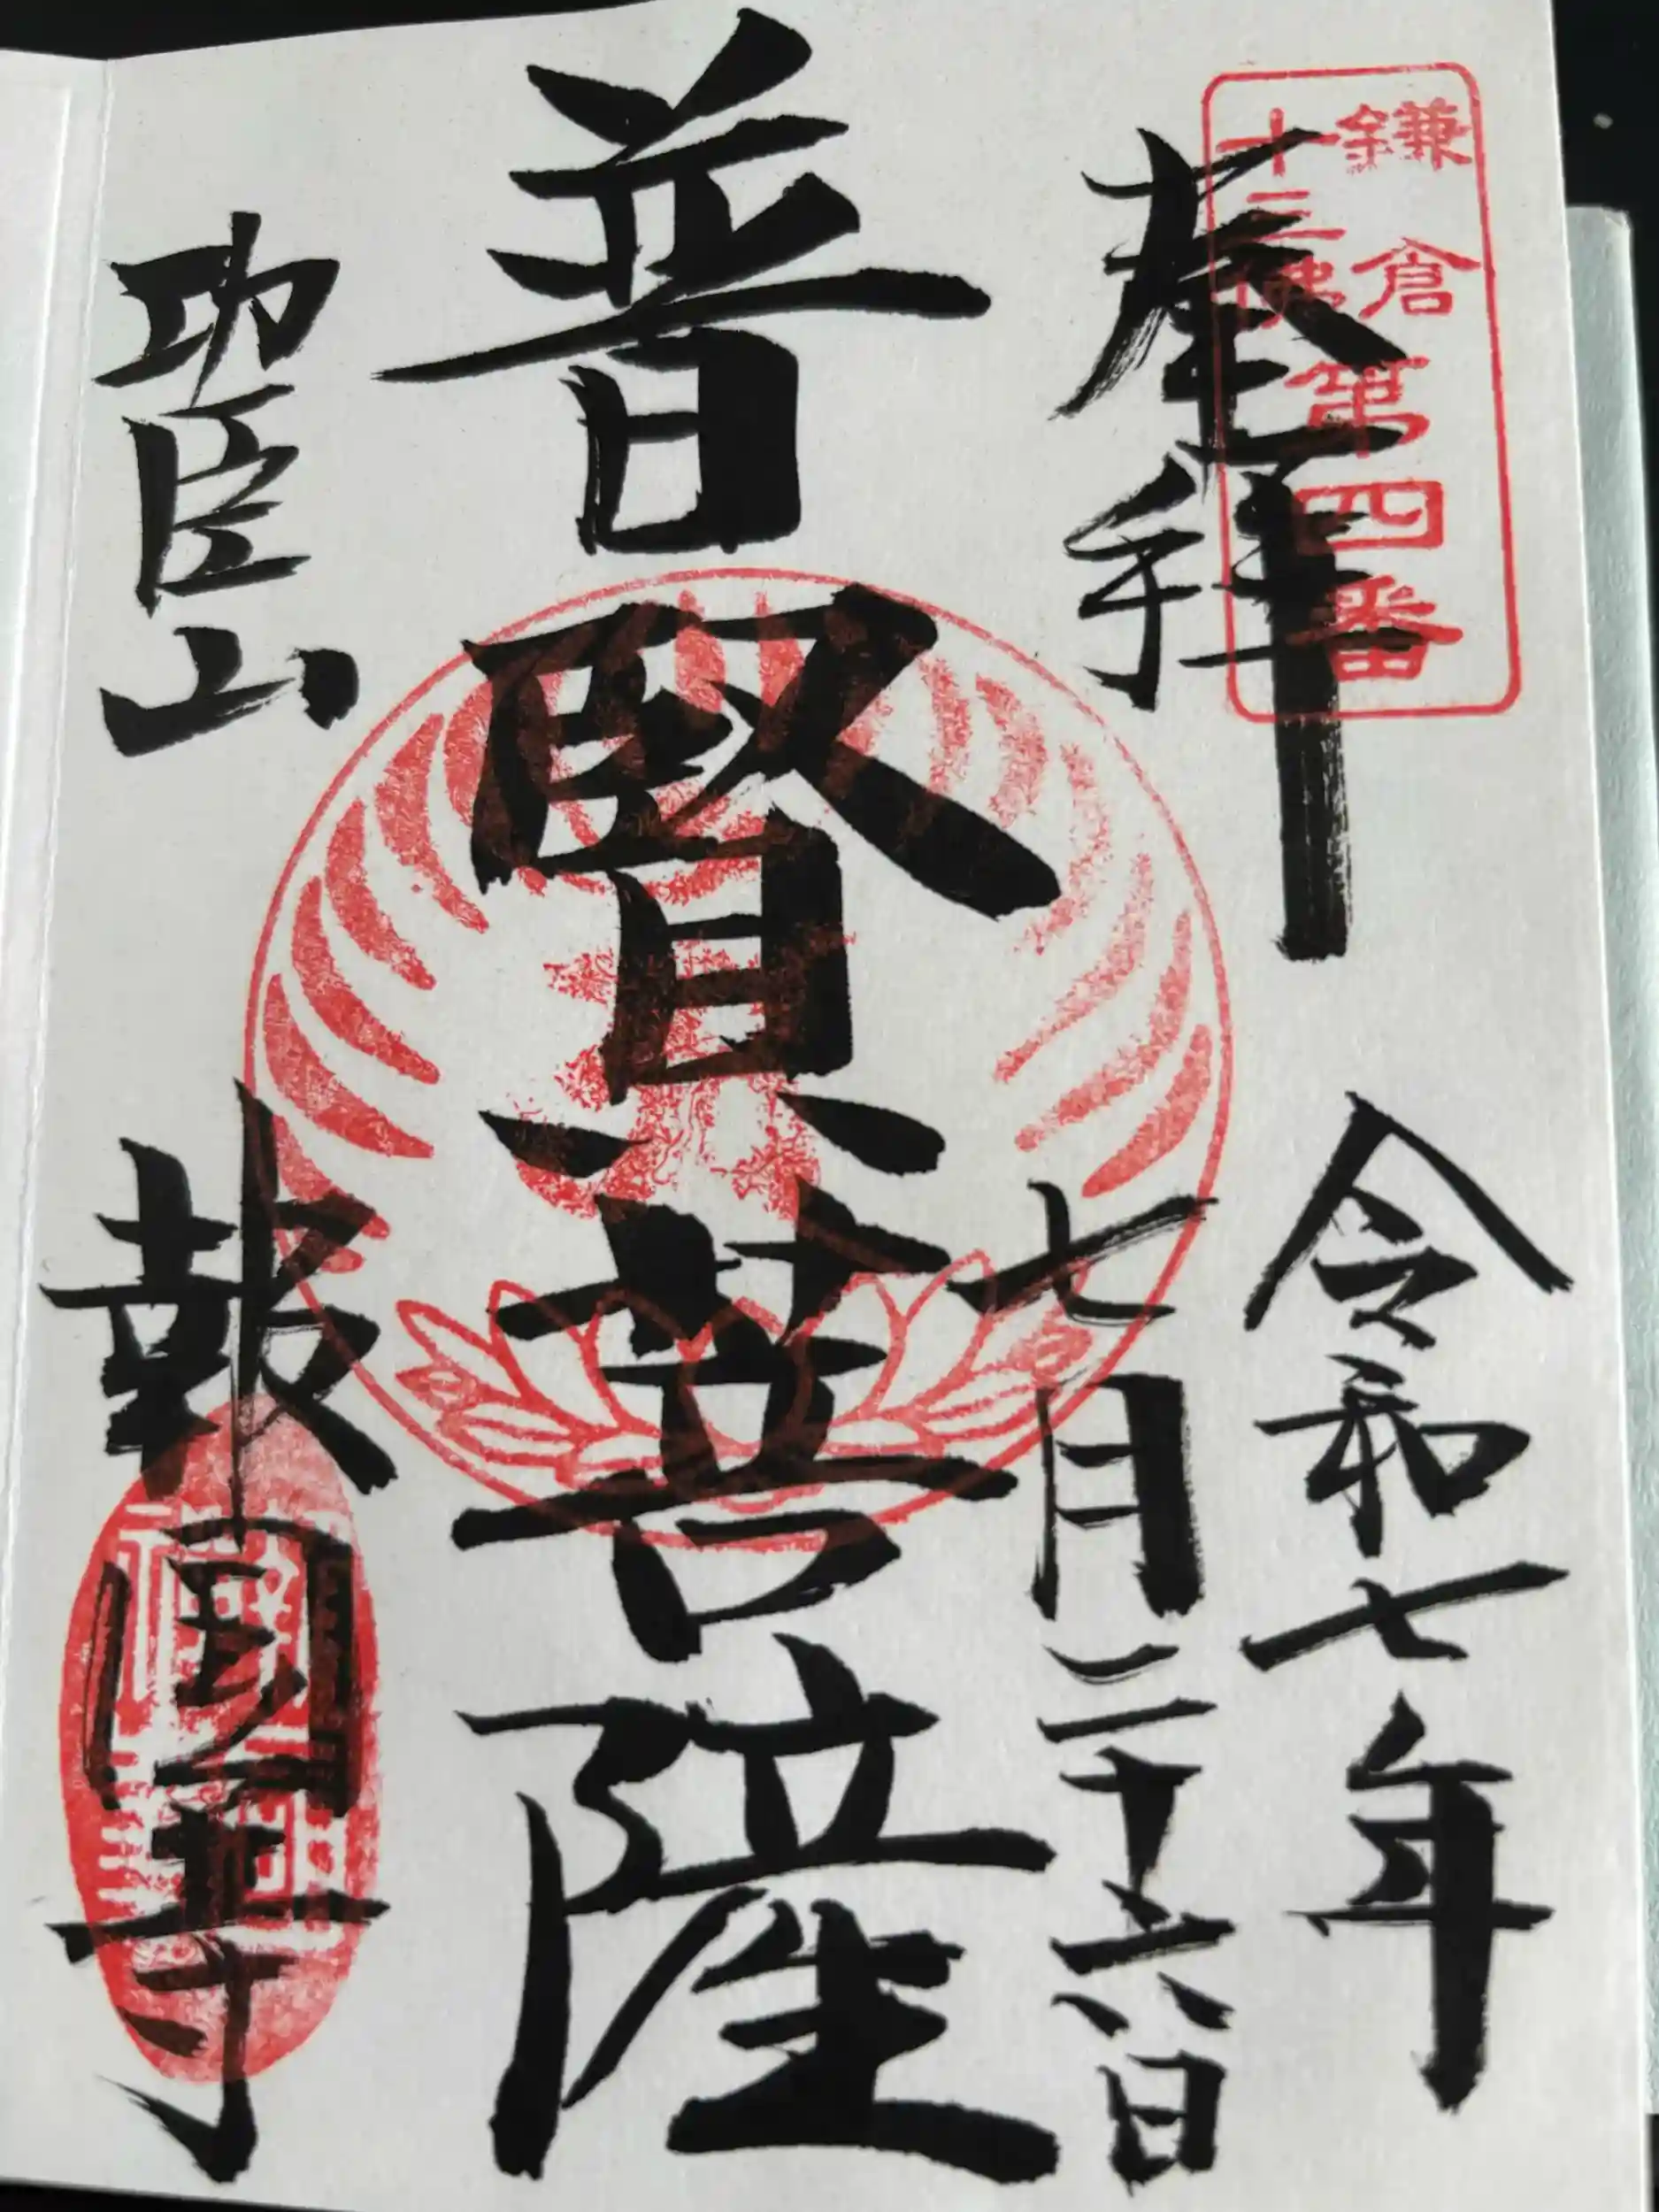 鎌倉
十三佛
第四番
奉拝
令和七年
七月二十六日
普賢菩薩
功臣山
報國寺